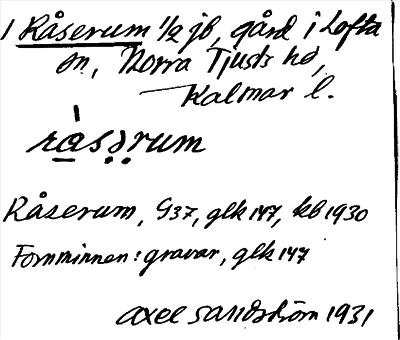 1 Råserum 1/2 jb, gård i Lofta
sn, Norra Tjusts hd,
Kalmar l.
råṣə̣rum
Råserum, G37, glk 147, kb 1930
Fornminnen: gravar, glk 147
Axel Sandström 1931